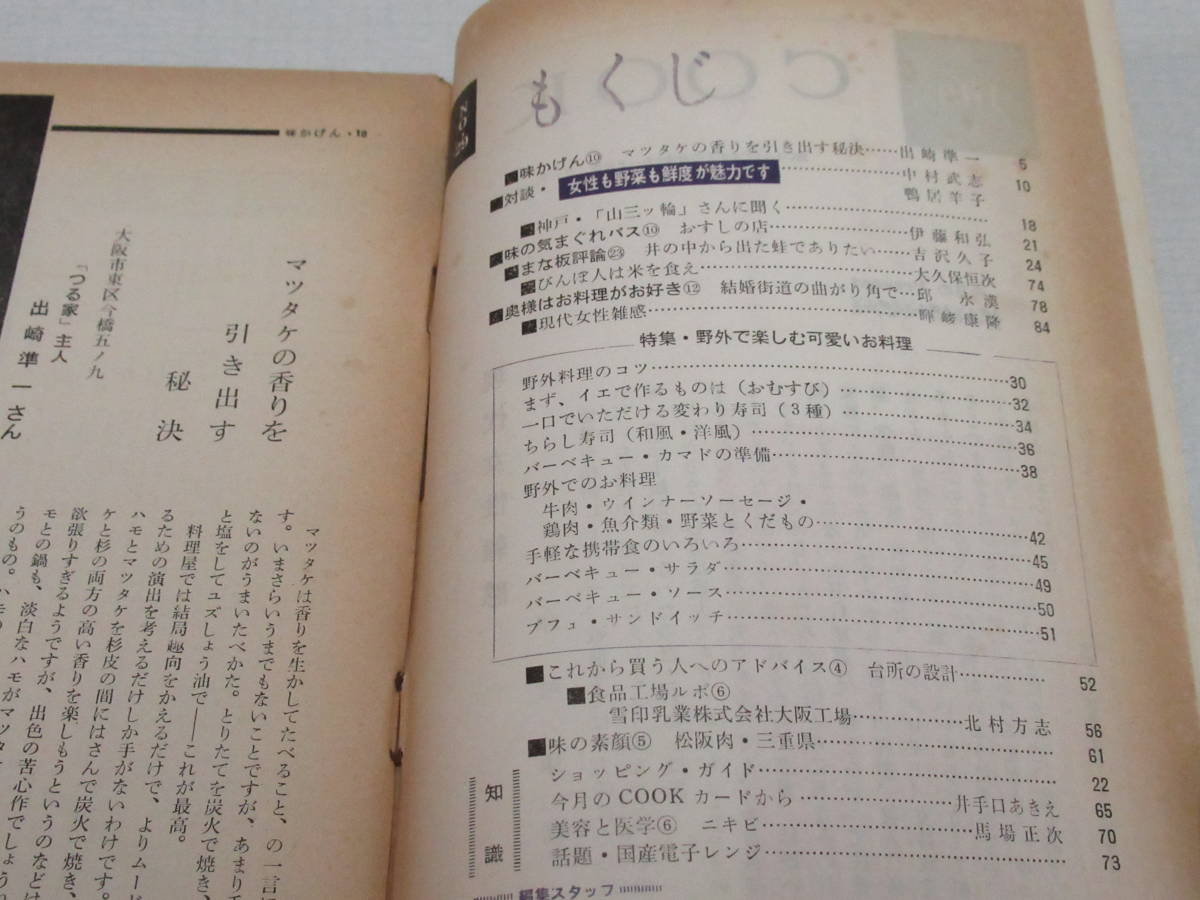 味かげん・18
マツタケの香りを
引き出す
秘決
大阪市東区今橋五ノ九
「つる家」主人
出崎準一さん
マツタケは香りを生かしてたべること、の一言に
す。いまさらいうまでもないことですが、あまり
ないのがうまいたべかた。とりたてを炭火で焼き、
と塩をしてユズしょう油で——これが最高。
料理屋では結局趣向をかえるだけで、よりムード
るための演出を考えるだけしか手がないわけです。
ハモとマツタケを杉皮の間にはさんで炭火で焼き、
ケと杉の両方の高い香りを楽しもうというのなどは
欲張りすぎるようですが、出色の苦心作でしょう
モとの鍋も、淡白なハモがマツタ
うのもの。
もくじ
COOK
NO.29
■味かげん⑩ マツタケの香りを引き出す秘決……出崎準一 5
■対談・女性も野菜も鮮度が魅力です 中村武志 10
鴨居羊子
■神戸・「山三ッ輪」さんに聞く…… 18
■味の気まぐれバス⑩ おすしの店……伊藤和弘 21
■まな板評論㉓ 井の中から出た蛙でありたい……吉沢久子 24
■びんぼ人は米を食え……大久保恒次 74
■奥様はお料理がお好き⑫ 結婚街道の曲がり角で…邱永漢 78
■現代女性雑感……暉峻康隆 84
特集・野外で楽しむ可愛いお料理
野外料理のコツ……30
まず、イエで作るものは（おむすび）……32
一口でいただける変わり寿司（3種）……34
ちらし寿司（和風・洋風）……36
バーベキュー・カマドの準備……38
野外でのお料理
牛肉・ウインナーソーセージ・
鶏肉・魚介類・野菜とくだもの……42
手軽な携帯食のいろいろ……45
バーベキュー・サラダ……49
バーベキュー・ソース……50
ブフュ・サンドイッチ……51
■これから買う人へのアドバイス④ 台所の設計……52
■食品工場ルポ⑥
雪印乳業株式会社大阪工場……北村方志 56
■味の素顔⑤ 松阪肉・三重県……61
知識
ショッピング・ガイド……22
今月のCOOKカードから……井手口あきえ 65
美容と医学⑥ ニキビ……馬場正次 70
話題・国産電子レンジ……73
編集スタッフ